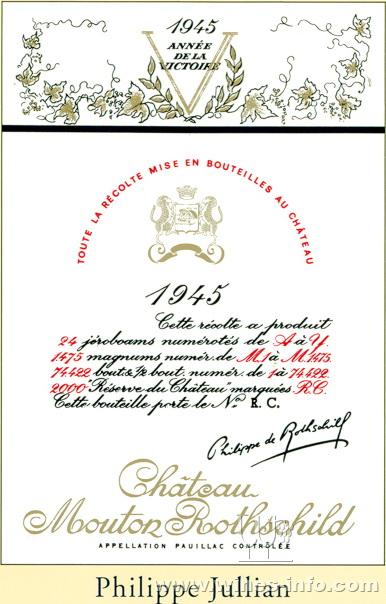 1945
ANNÉE
DE LA
VICTOIRE
TOUTE LA RÉCOLTE MISE EN BOUTEILLES AU CHÂTEAU
1945
Cette récolte a produit
24 jéroboams numérotés de A à Y.
1475 magnums numér. de M.1 à M.1475.
74422 bout. & 1/2 bout. numér. de 1 à 74422.
2000 "Réserve du Château" marquées R.C.
Cette bouteille porte le No R.C.
Philippe de Rothschild
Château
Mouton Rothschild
APPELLATION PAUILLAC CONTRÔLÉE
www.wines-info.com
Philippe Jullian